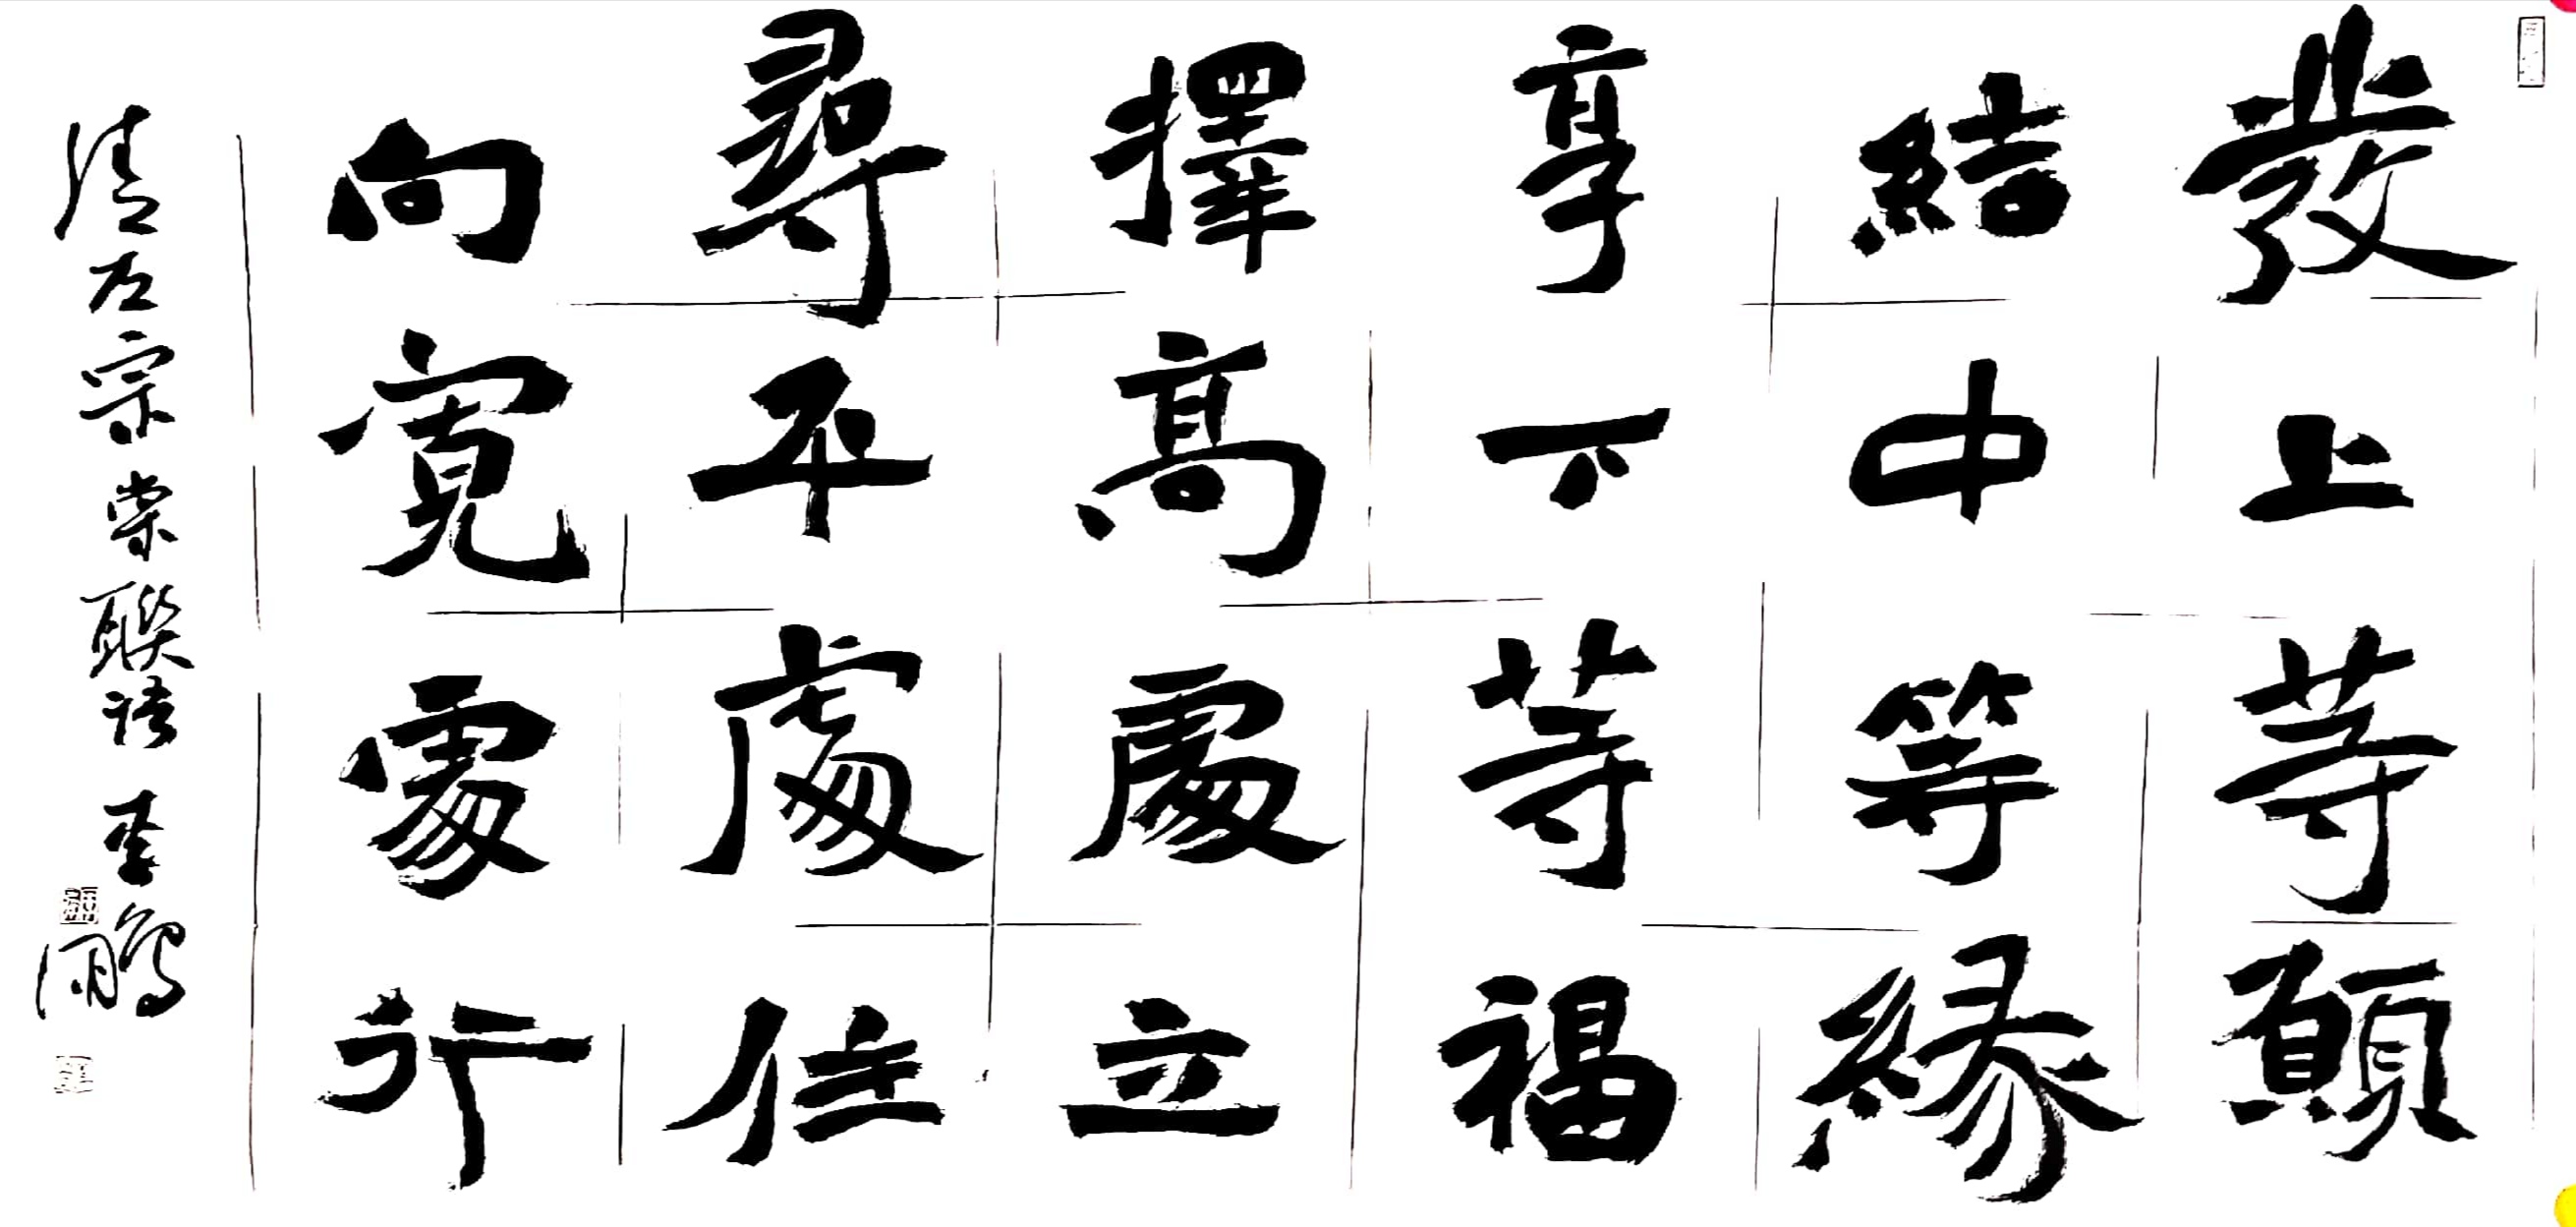 發上等願
結中等緣
享下等福
擇高處立
尋平處住
向寬處行
清左宗棠聯語 李鵬